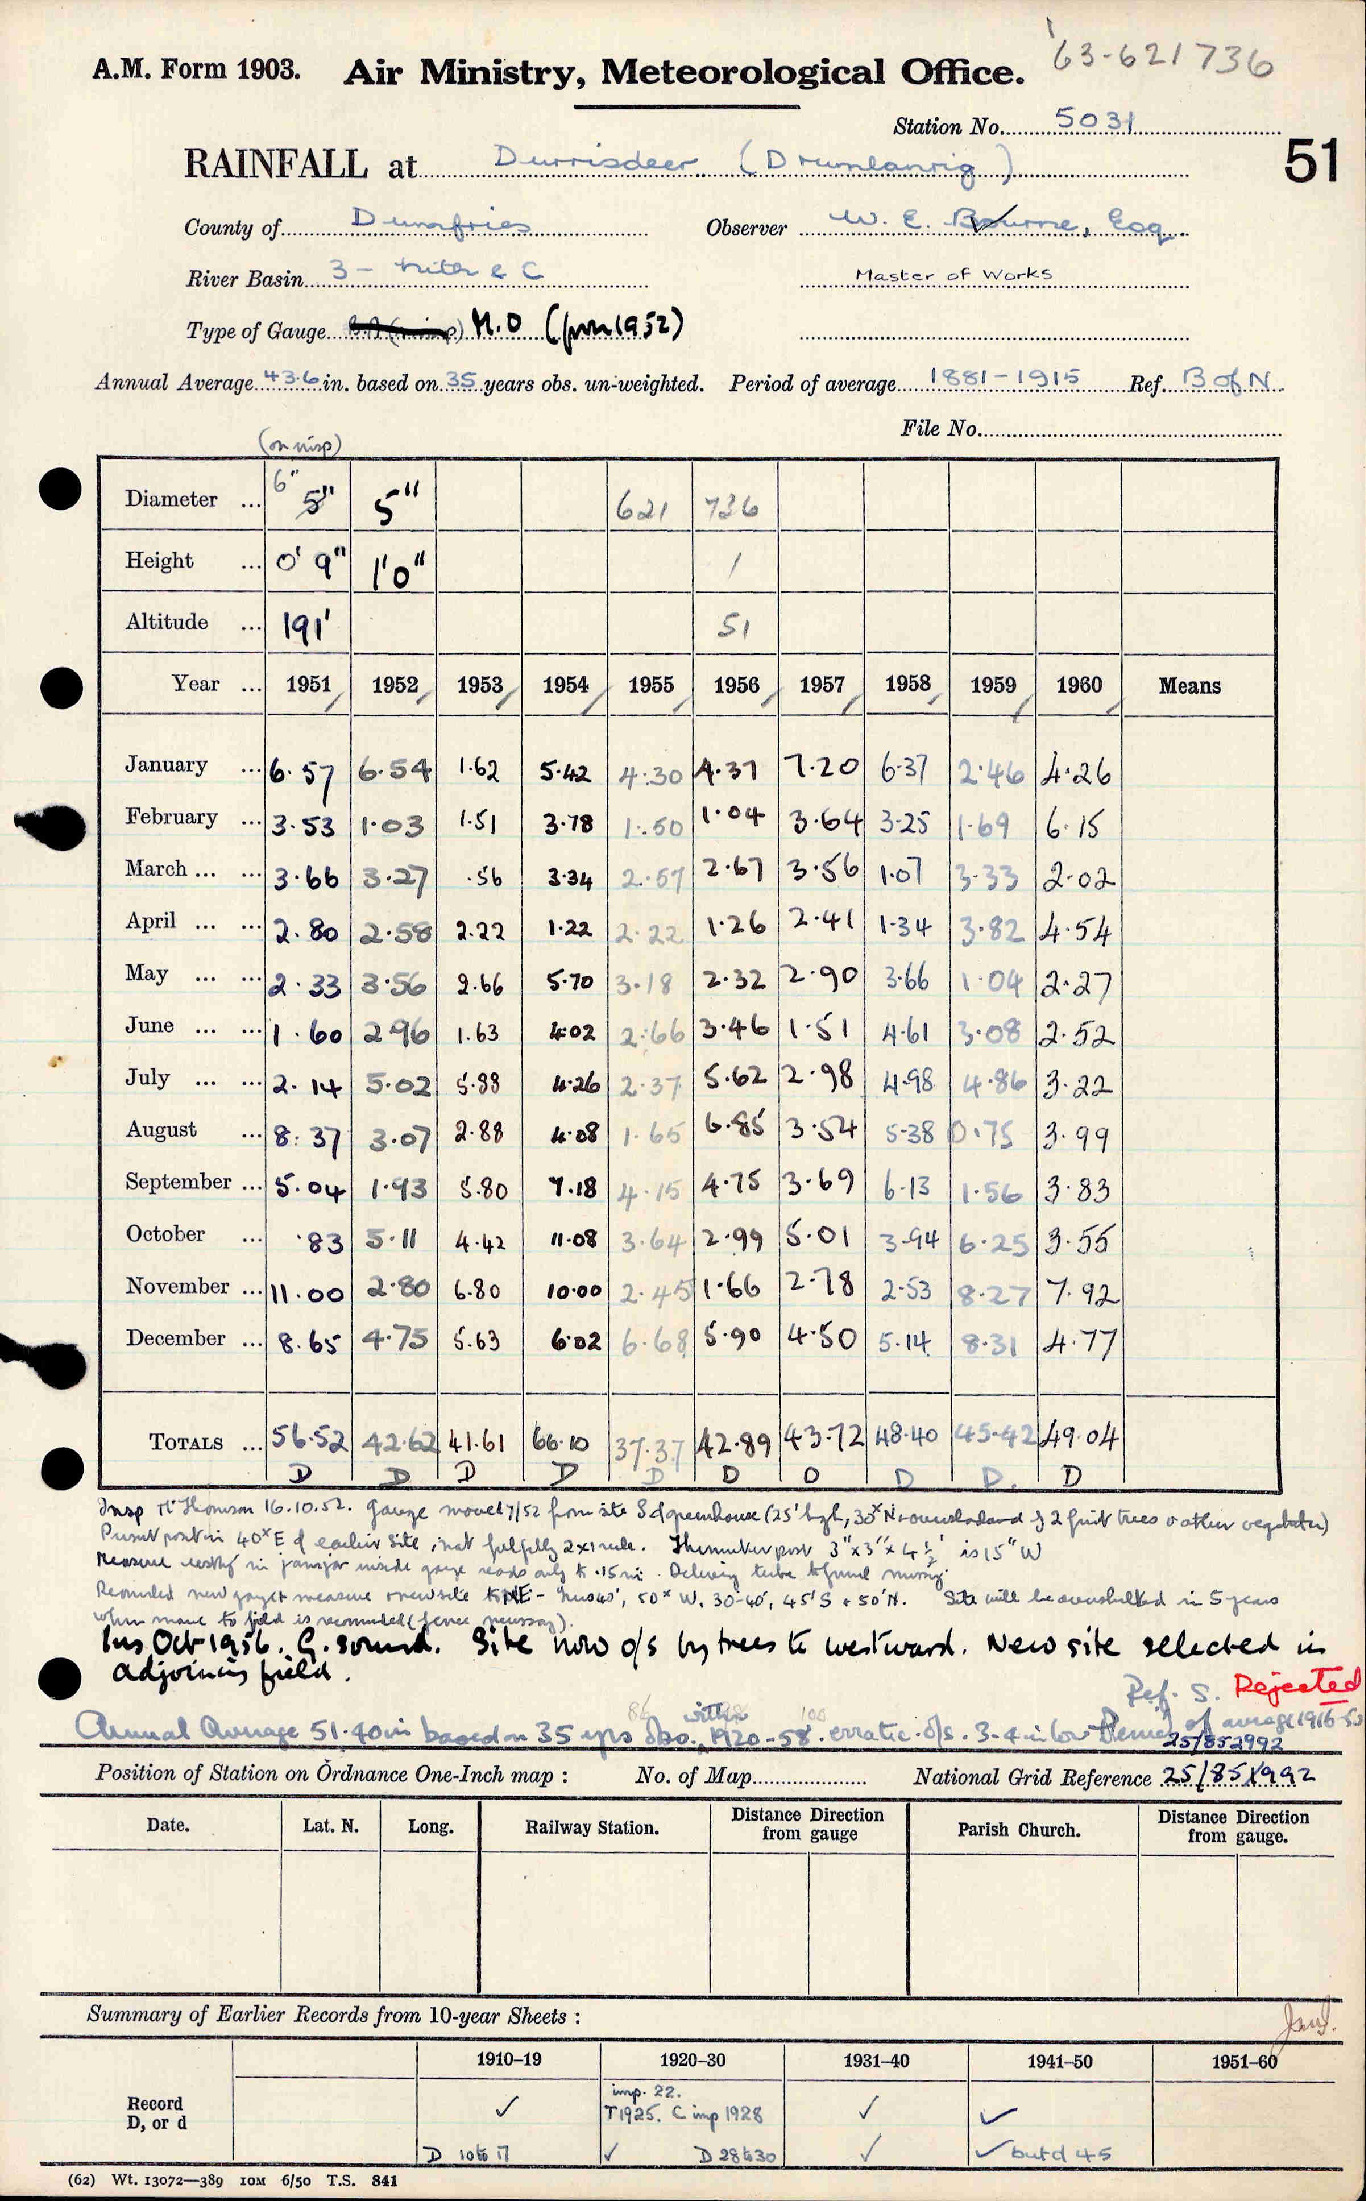 '63-621736
A.M. Form 1903. Air Ministry, Meteorological Office.
Station No. 5031
51
RAINFALL at Durrisdeer (Drumlanrig)
County of Dumfries Observer W. E. Bourne, Esq.
River Basin 3 - Nith & C Master of Works
Type of Gauge M.O (from 1952)
Annual Average 43.6 in. based on 35 years obs. un-weighted. Period of average 1881-1915 Ref. B of N
File No.
(on insp)
Diameter ... 6" 5" 5" 621 736
Height ... 0' 9" 1'0" 1
Altitude ... 191' 51
Year ... 1951 1952 1953 1954 1955 1956 1957 1958 1959 1960 Means
January ... 6.57 6.54 1.62 5.42 4.30 4.37 7.20 6.37 2.46 4.26
February ... 3.53 1.03 1.51 3.78 1.50 1.04 3.64 3.25 1.69 6.15
March ... ... 3.66 3.27 .56 3.34 2.57 2.67 3.56 1.07 3.33 2.02
April ... ... 2.80 2.58 2.22 1.22 2.22 1.26 2.41 1.34 3.82 4.54
May ... ... 2.33 3.56 2.66 5.70 3.18 2.32 2.90 3.66 1.04 2.27
June ... ... 1.60 2.96 1.63 4.02 2.66 3.46 1.51 4.61 3.08 2.52
July ... ... 2.14 5.02 5.88 4.26 2.37 5.62 2.98 4.98 4.86 3.22
August ... 8.37 3.07 2.88 4.08 1.65 6.85 3.54 5.38 0.75 3.99
September ... 5.04 1.93 5.80 7.18 4.15 4.75 3.69 6.13 1.56 3.83
October ... .83 5.11 4.42 11.08 3.64 2.99 5.01 3.94 6.25 3.55
November ... 11.00 2.80 6.80 10.00 2.45 1.66 2.78 2.53 8.27 7.92
December ... 8.65 4.75 5.63 6.02 6.68 5.90 4.50 5.14 8.31 4.77
TOTALS ... 56.52 42.62 41.61 66.10 37.37 42.89 43.72 48.40 45.42 49.04
D D D D D D D D D. D
Insp Thomson 16.10.52. Gauge moved 7/52 from site S of greenhouse (25' high, 30x N & overshadowed by 2 fruit trees & other vegetation)
Present post in 40x E of earlier site, not fulfilling 2x1 rule. Thermometer post 3"x3"x4½' is 15" W
Measure in jamjar inside gauge reads only to .15in. Delivery tube to funnel missing.
Recommended new gauge & measure & new site to NE - 40', 50x W, 30-40', 45' S & 50' N. Site will be overshadowed in 5 years
when move to field is recommended (fence necessary).
Ins Oct 1956. G. sound. Site now o/s by trees to westward. New site selected in
adjoining field.
Ref. S. Rejected
Annual Average 51.40 in based on 35 yrs obs. within 1920-58. erratic o/s. 3-4 in low Period of average 1916-50
25/852992
Position of Station on Ordnance One-Inch map : No. of Map National Grid Reference 25/851992
Date. Lat. N. Long. Railway Station. Distance Direction from gauge Parish Church. Distance Direction from gauge.
Summary of Earlier Records from 10-year Sheets :
1910-19 1920-30 1931-40 1941-50 1951-60
Record
D, or d
✓ imp. 22. T1925. C imp 1928 ✓ ✓
D 10 to 17 ✓ D 28 to 30 ✓ ✓ but d 45
(62) Wt. 13072—389 10M 6/50 T.S. 841